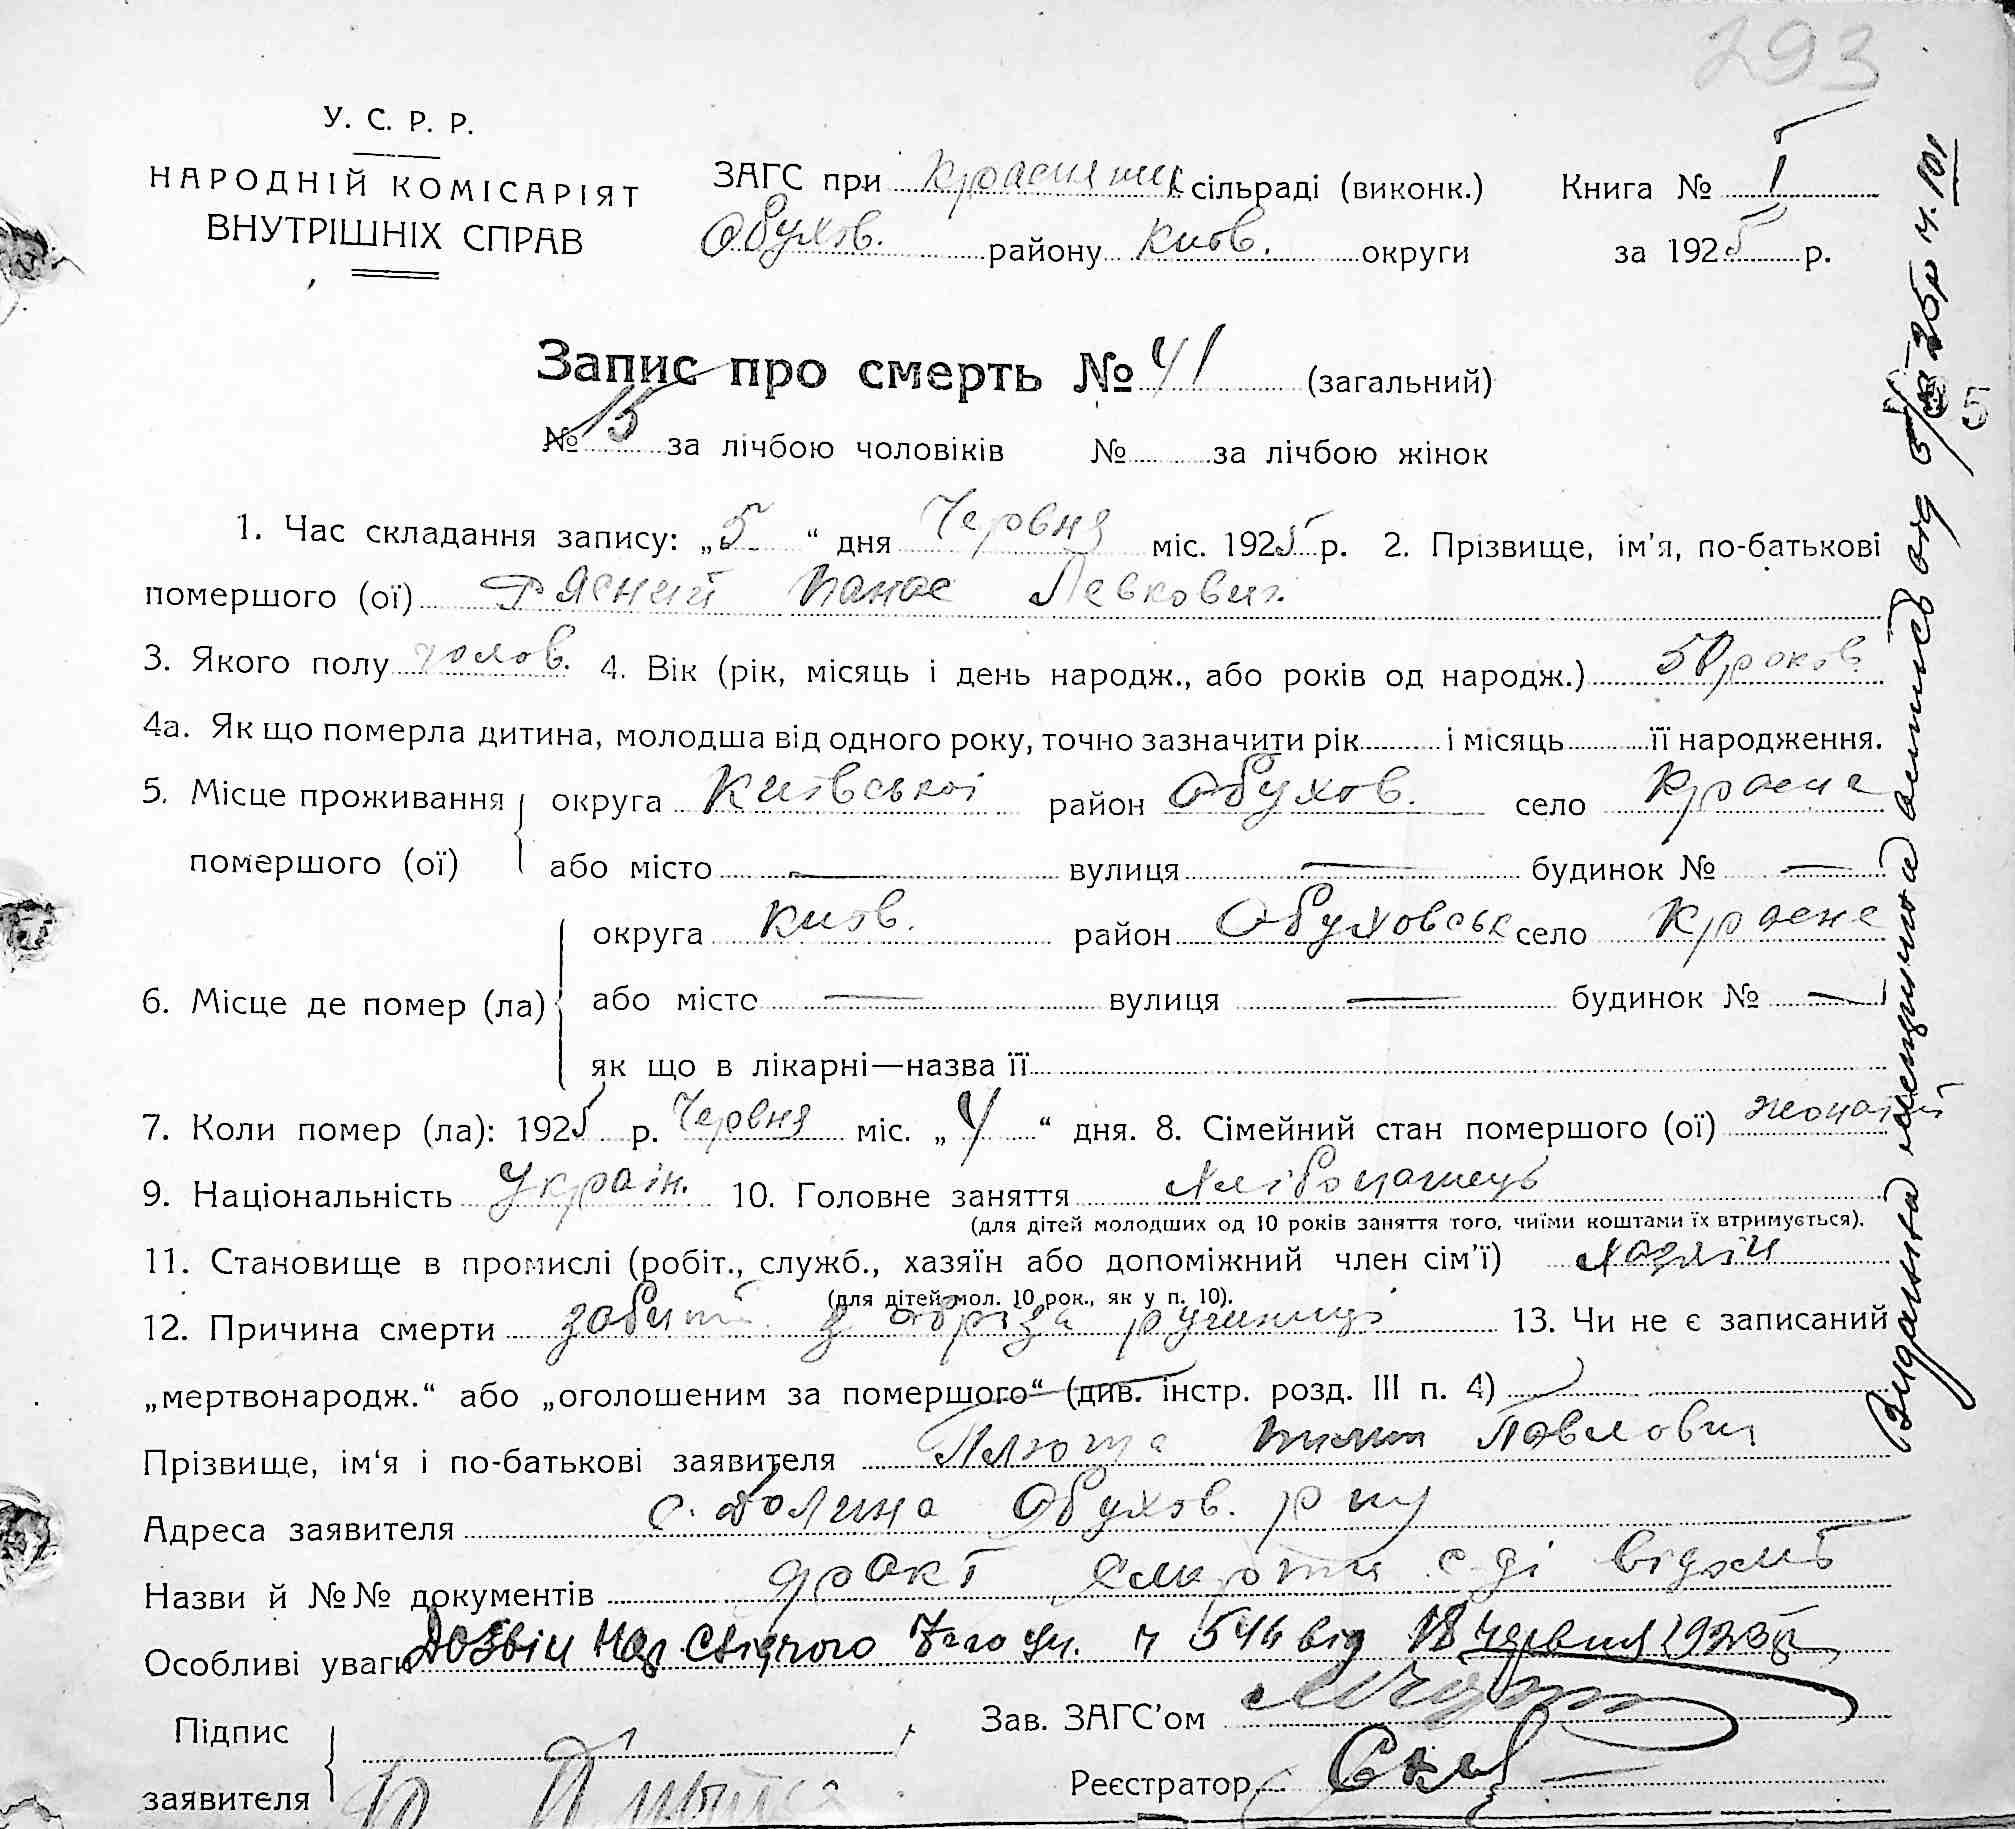 293
У. С. Р. Р.
НАРОДНІЙ КОМІСАРІЯТ
ВНУТРІШНІХ СПРАВ
ЗАГС при Краснянск сільраді (виконк.) Книга № I
Обухов. району Київ. округи за 1925 р.
Запис про смерть № 41 (загальний)
№ 15 за лічбою чоловіків № за лічбою жінок
5
1. Час складання запису: „5“ дня Червня міс. 1925 р. 2. Прізвище, ім'я, по-батькові
помершого (ої) Рясний Панас Левкович
3. Якого полу чолов. 4. Вік (рік, місяць і день народж., або років од народж.) 50 років
4а. Як що померла дитина, молодша від одного року, точно зазначити рік і місяць її народження.
5. Місце проживання помершого (ої) округа Київської район Обухов. село Красне
або місто — вулиця — будинок № —
6. Місце де помер (ла) округа Київ. район Обуховськ село Красне
або місто — вулиця — будинок № —
як що в лікарні—назва її
7. Коли помер (ла): 1925 р. Червня міс. „4“ дня. 8. Сімейний стан помершого (ої) жонатий
9. Національність Україн. 10. Головне заняття Хлібопашець
(для дітей молодших од 10 років заняття того, чиїми коштами їх втримується).
11. Становище в промислі (робіт., служб., хазяїн або допоміжний член сім'ї) хазяїн
(для дітей мол. 10 рок., як у п. 10).
12. Причина смерти забитий з обріза рушниці 13. Чи не є записаний
„мертвонародж.“ або „оголошеним за помершого“ (див. інстр. розд. III п. 4)
Прізвище, ім'я і по-батькові заявителя Плюта Павлович
Адреса заявителя с. Долина Обухов. р-ну
Назви й №№ документів факт смерти с-ді відомо
Особливі уваги Дозвіл Нар. Слідчого 7го 546 від 18 червня 1925 р.
Підпис заявителя
Зав. ЗАГС'ом
Реєстратор
Видання випись од